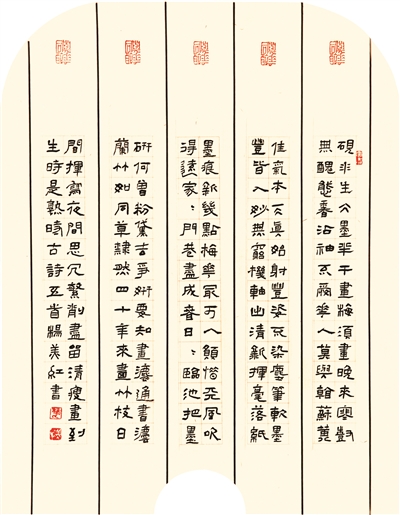 硯水生冰墨半干畫梅須畫晚來寒樹
無醜態香沾袖不愛花人莫與看蘇黃
佳氣本天真姑射豐姿不染塵筆軟墨
豐皆入妙無窮機軸出清新揮毫落紙
墨痕新幾點梅花最可人願借天風吹
得遠家〻門巷盡成春日〻臨池把墨
研何曾粉黛去爭妍要知畫灋通書灋
蘭竹如同草隸然四十年來畫竹枝日
間揮寫夜間思冗繁削盡留清瘦畫到
生時是熟時古詩五首楊美紅書